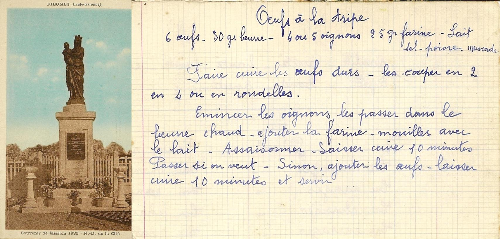 Oeufs à la tripe
6 œufs - 30 gr beurre - 4 ou 5 oignons 25 gr farine - Lait
sel - poivre muscade
Faire cuire les œufs durs - les couper en 2
en 4 ou en rondelles.
Emincer les oignons, les passer dans le
beurre chaud - ajouter la farine - mouiller avec
le lait - Assaisonner - Laisser cuire 10 minutes
Passer si on veut - Sinon, ajouter les œufs - laisser
cuire 10 minutes et servir